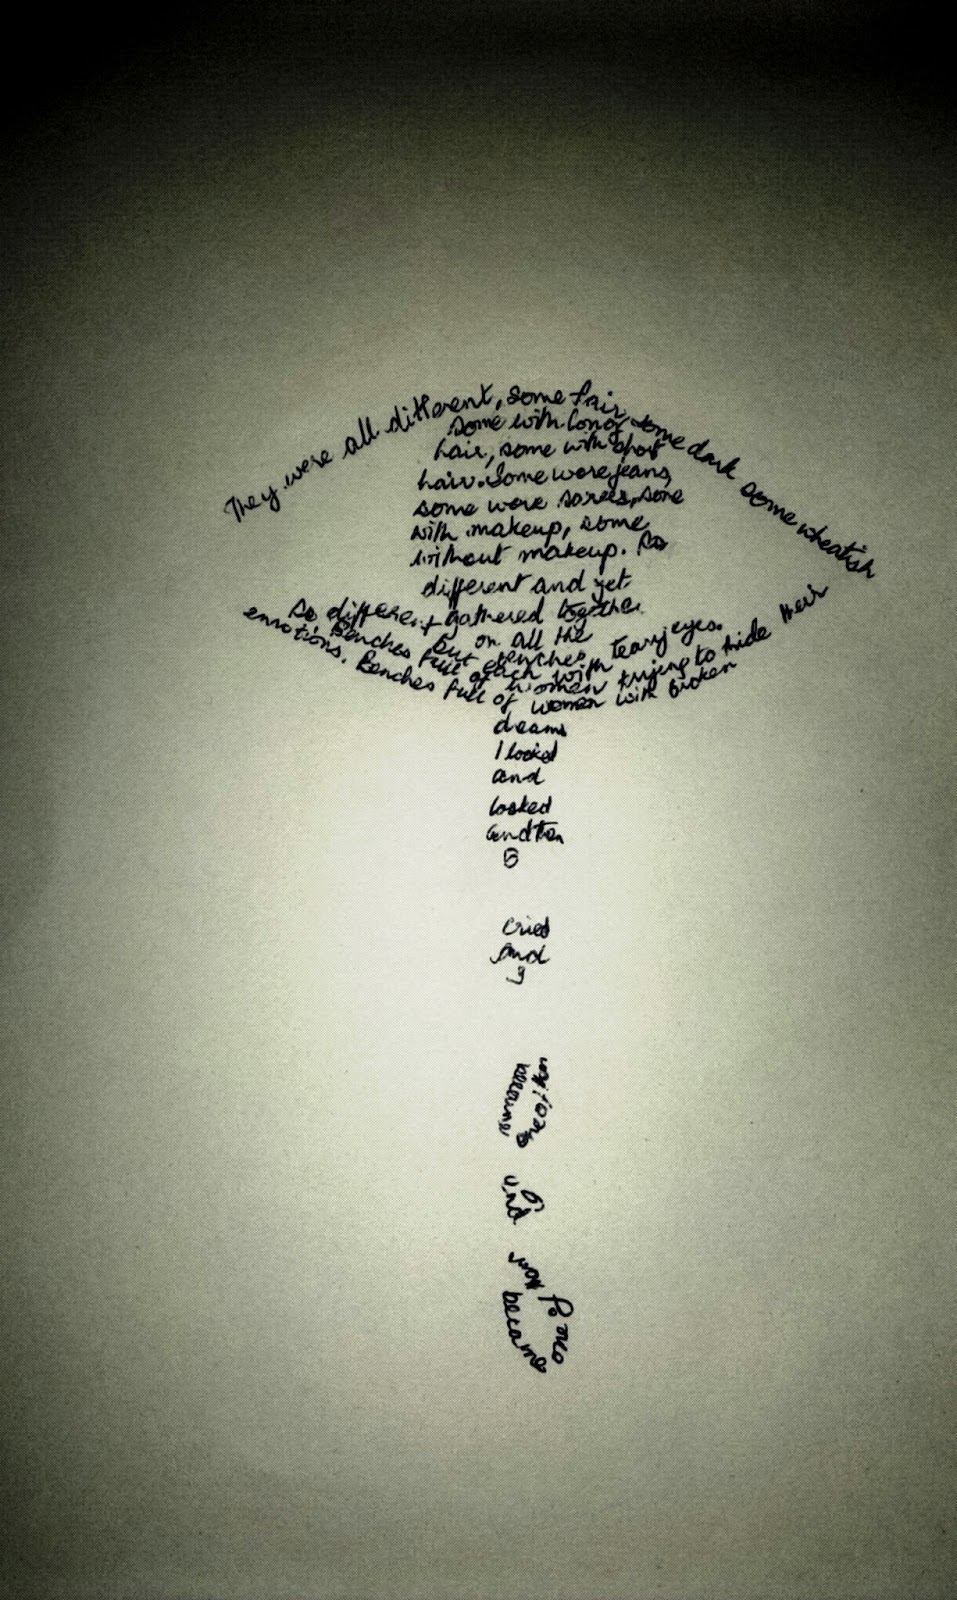 They were all different, some fair, some dark some wheatish
some with long
hair, some with short
hair. Some wore jeans,
some wore sarees, some
with makeup, some
without makeup. So
different and yet
so different gathered together
on all the
but benches
each with teary eyes.
Benches full of women trying to hide their
emotions. Benches full of women with broken
deams
I looked
and
looked
and then
cried
and
I
became
one
and
became